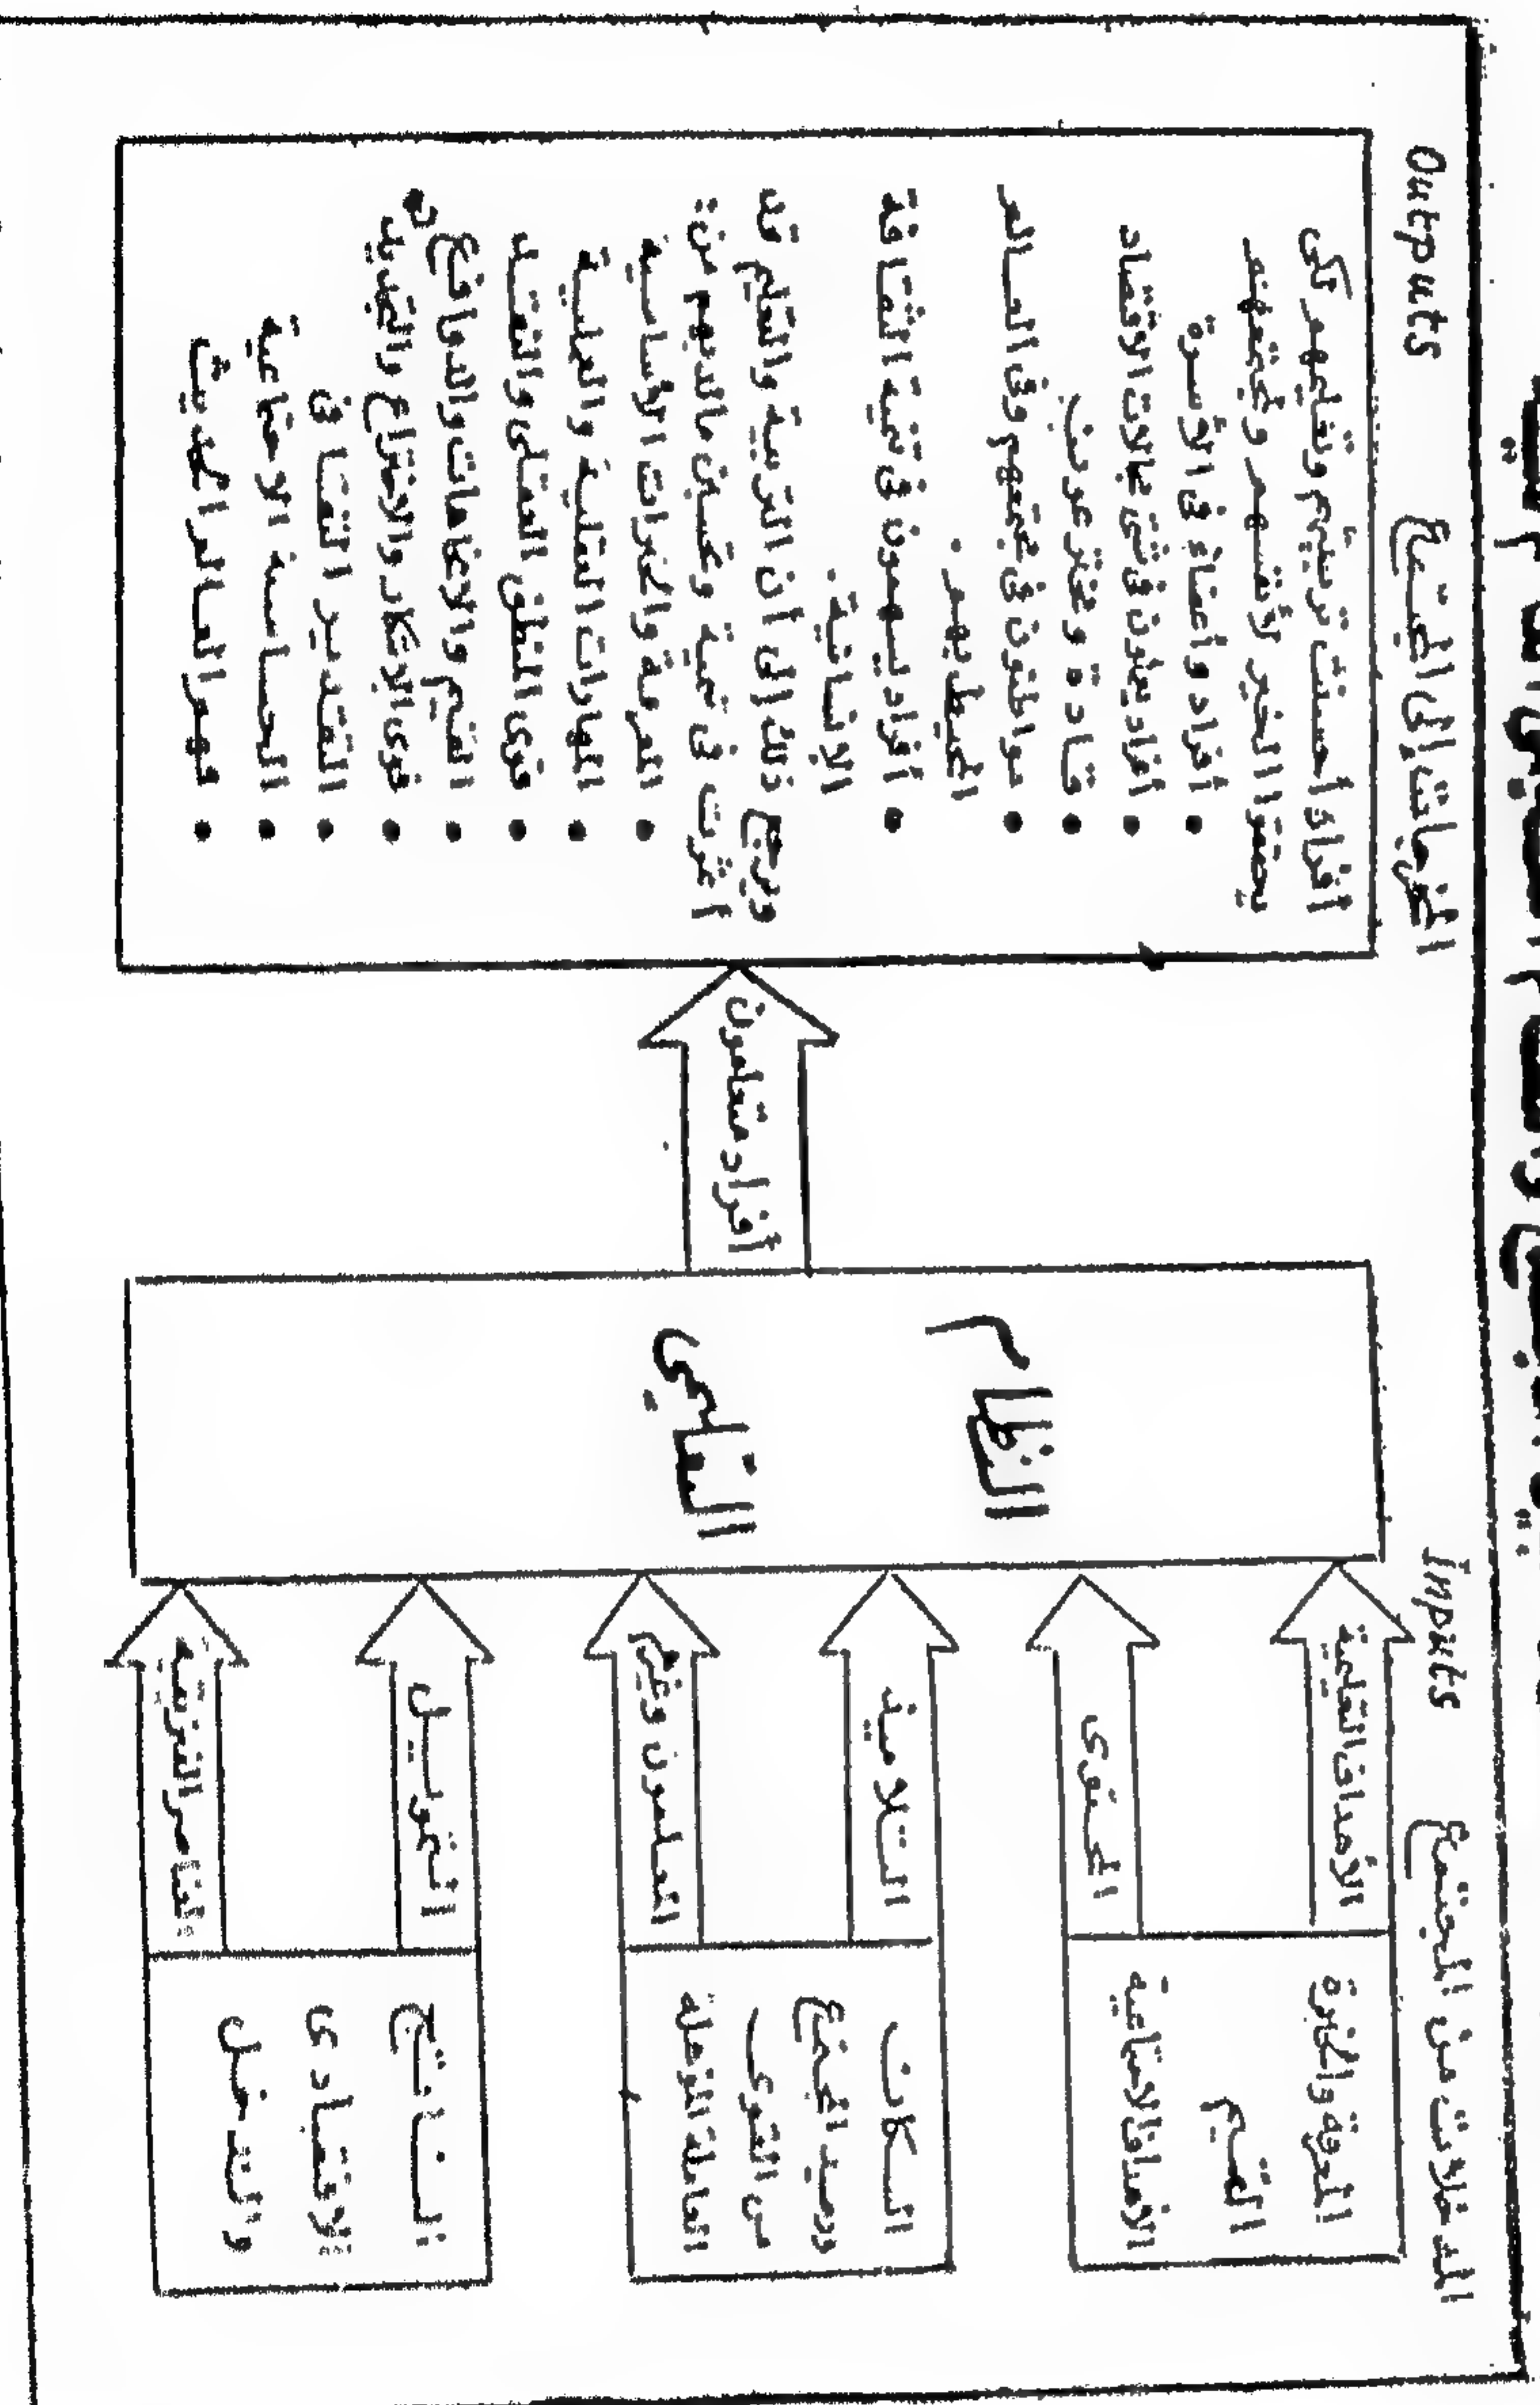 المدخلات من المجتمع Inputs
المعرفة والخبرة
القيم
الأهداف الاجتماعية
الأهداف التعليمية
المحتوى
السكان
ورصيد المجتمع
من القوى
العاملة المؤهلة
التلاميذ
المعلمون وغيرهم
الناتج
الاقتصادى
والدخل
التمويل
العناصر الفيزيقية
النظام
التعليمى
أفراد متعلمون
المخرجات إلى المجتمع Outputs
أفراد أحسنت تربيتهم وتعليمهم لكى
يحققوا الخير لأنفسهم ولمجتمعهم
• أفراد وأعضاء فى الأسرة
• أفراد يعملون فى شتى مجالات الاقتصاد
• قادة ومخترعون.
• مواطنون فى مجتمعهم وفى العالم
المحيط بهم.
• أفراد يسهمون فى تنمية الثقافة
الإنسانية.
ويرجع ذلك إلى أن التربية والتعليم قد
أثرت فى تنمية وتحسين ما لديهم من:
• المعرفة والخبرات الأساسية
• المهارات العقلية والعملية
• قوى المنطق العقلى والنقد
• القيم والاتجاهات والدوافع
• قوى الابتكار والاختراع والتجديد
• التقدير الثقافى
• الحساسية الاجتماعية
• فهم العالم الحديث